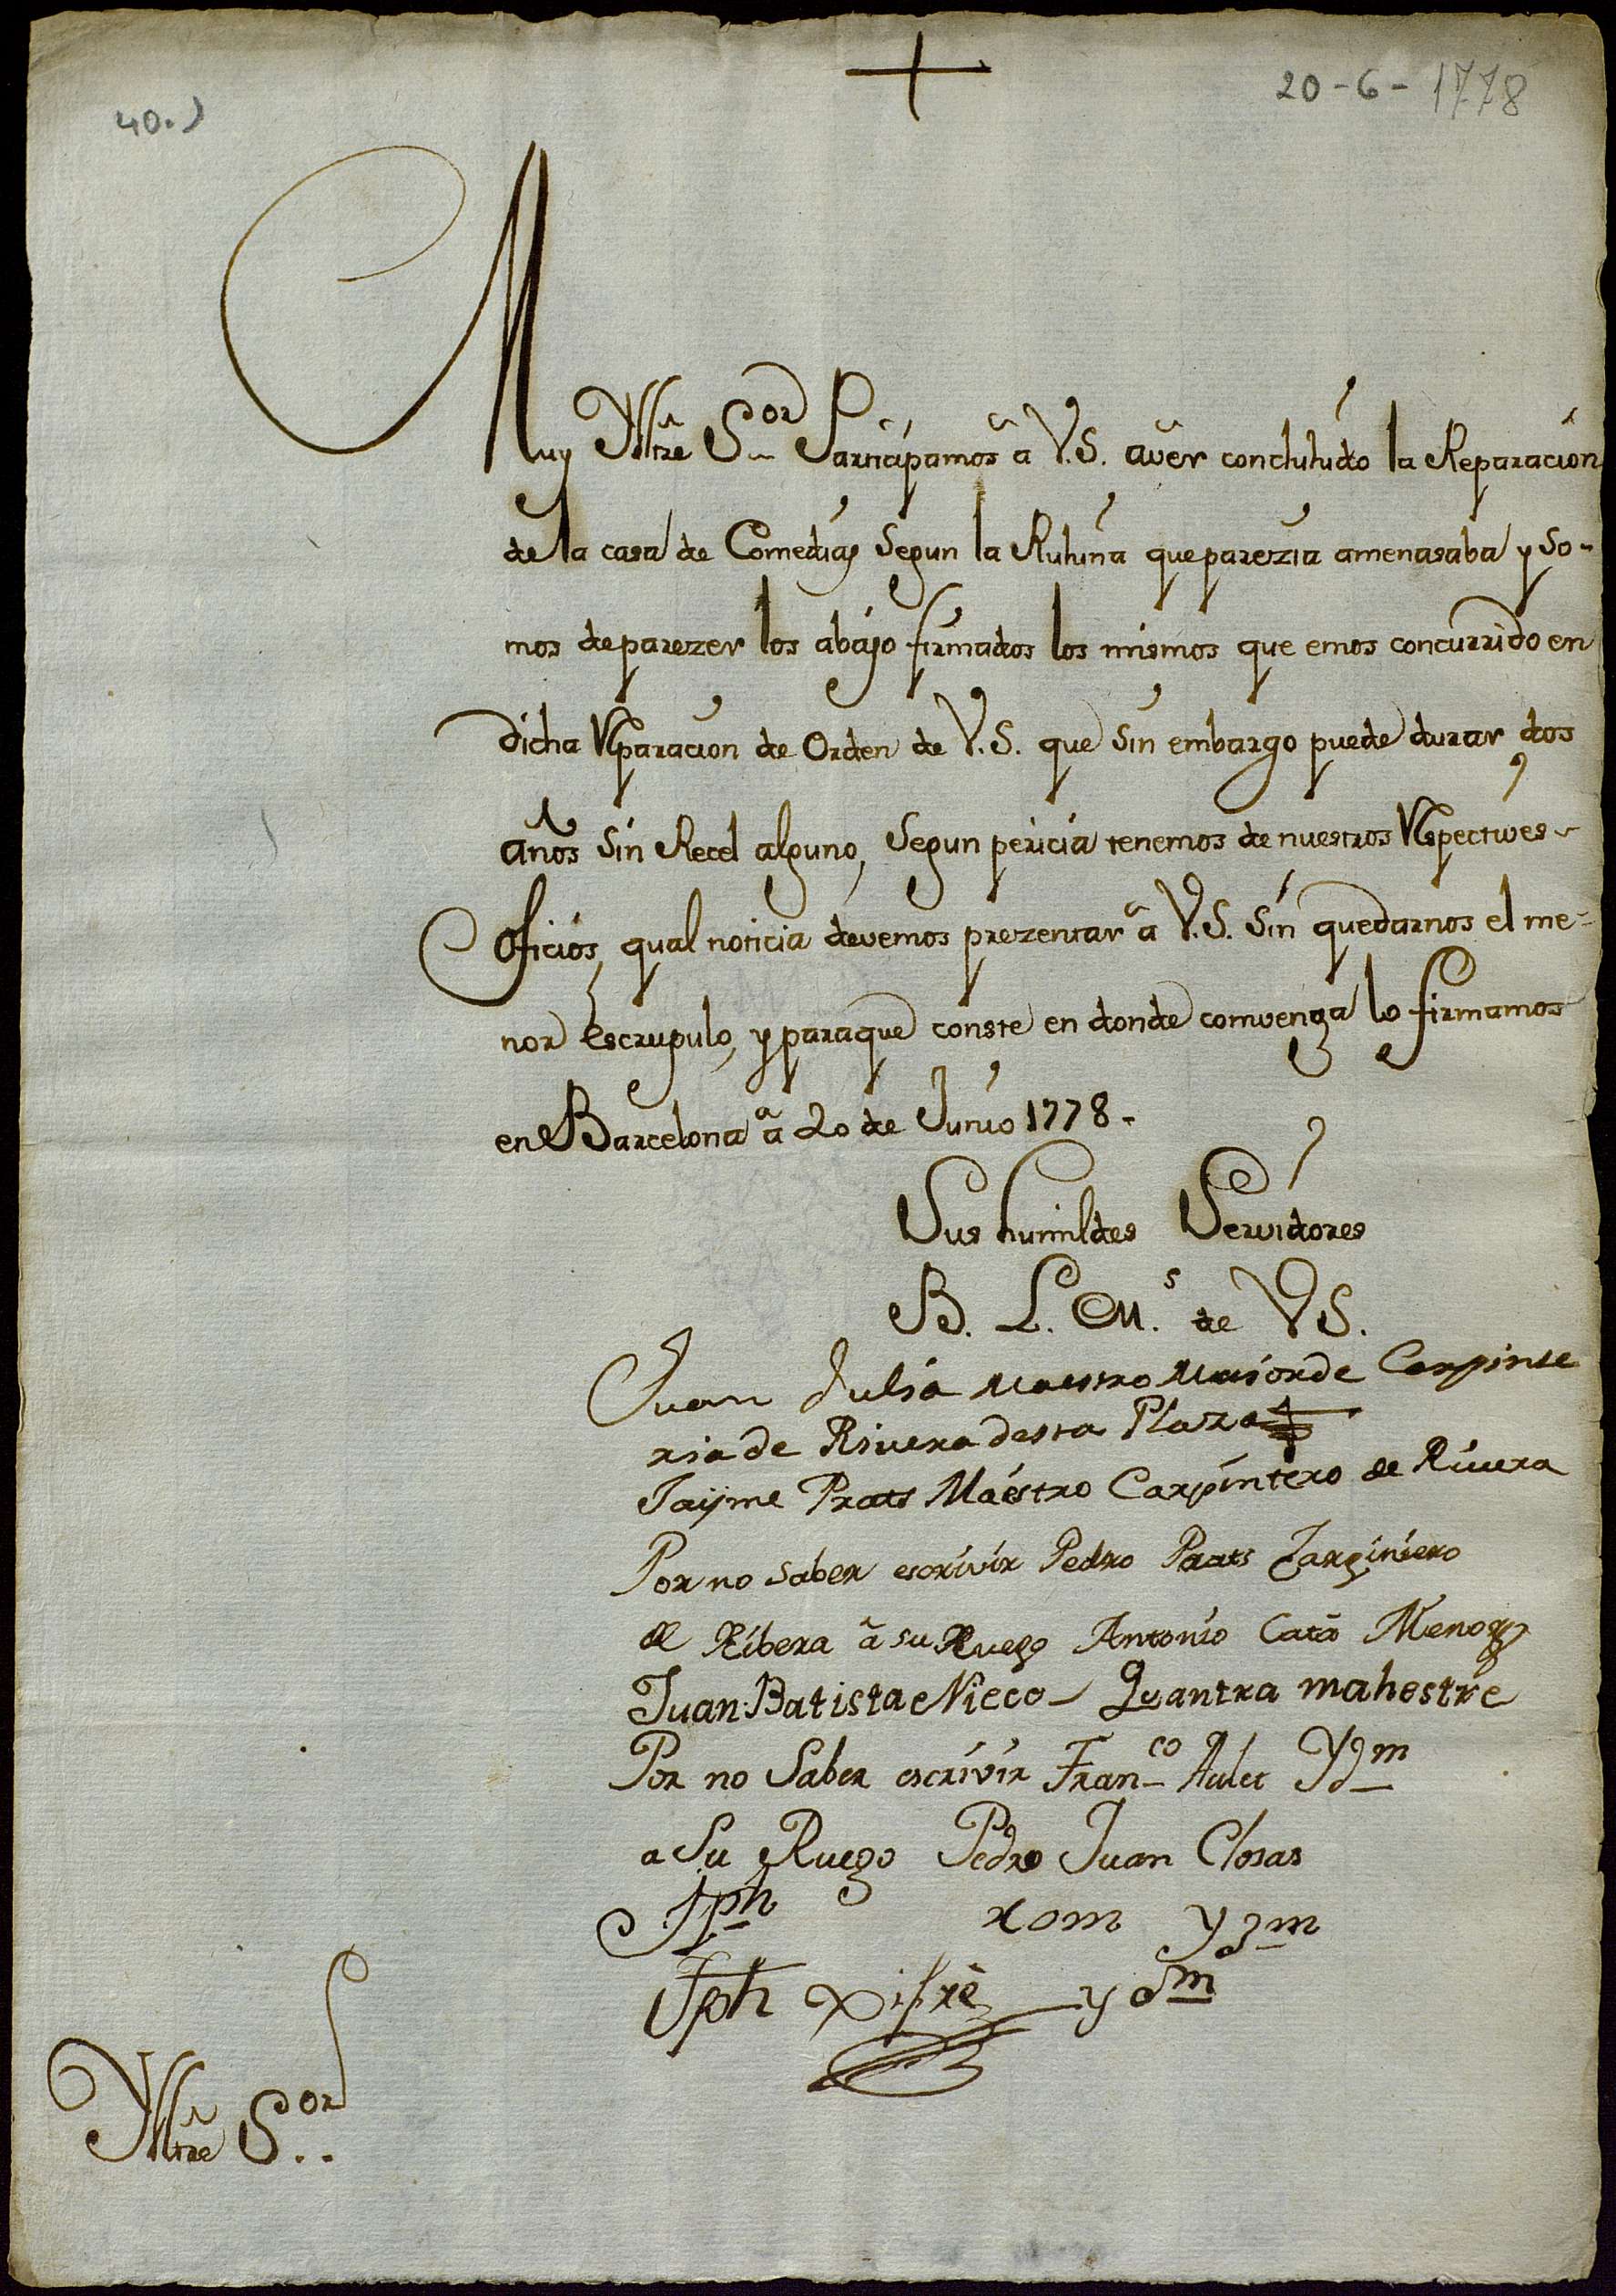 40.)
20-6-1778
Muy Yltre Sor Participamos â V.S. aver concluhido la Reparacion
de la casa de Comedias segun la Ruhina que parezia amenasaba y so-
mos de parezer los abajo firmados los mismos que emos concurrido en
dicha Reparacion de Orden de V.S. que sin embargo puede durar dos
años sin Recel alguno, segun pericia tenemos de nuestros Respectives
Oficios, qual noticia devemos prezentar â V.S. sin quedarnos el me-
nor escrupulo, y paraque conste en donde comvenga lo firmamos
en Barcelona â 20 de Junio 1778.
Sus humildes Servidores
B. L. M.s de V.S.
Juan Julia Maestro Maior de Carpinte
ria de Rivera desta Plaza
Jayme Prats Maestro Carpintero de Rivera
Por no saber escrivir Pedro Prats Carpintero
de Ribera â su Ruego Antonio Catâ Menor
Juan Batista Nieco mahestre
Por no Saber escrivir Fran.co Aulet Ydm
a Su Ruego Pedro Juan Closas
Jph rom Ydm
Jph Xifrè ydm
Yltre Sor